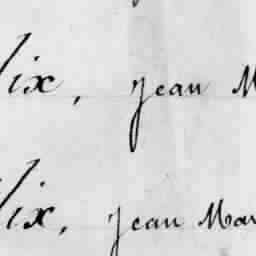 lix, Jean M
lix, Jean Mar